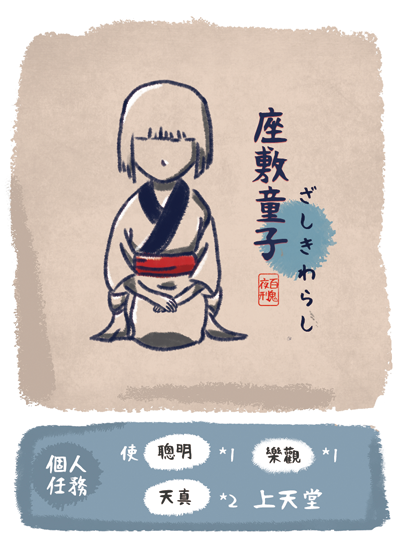 座敷童子
ざしきわらし
百鬼
夜行
個人
任務
使 聰明 *1 樂觀 *1
天真 *2 上天堂